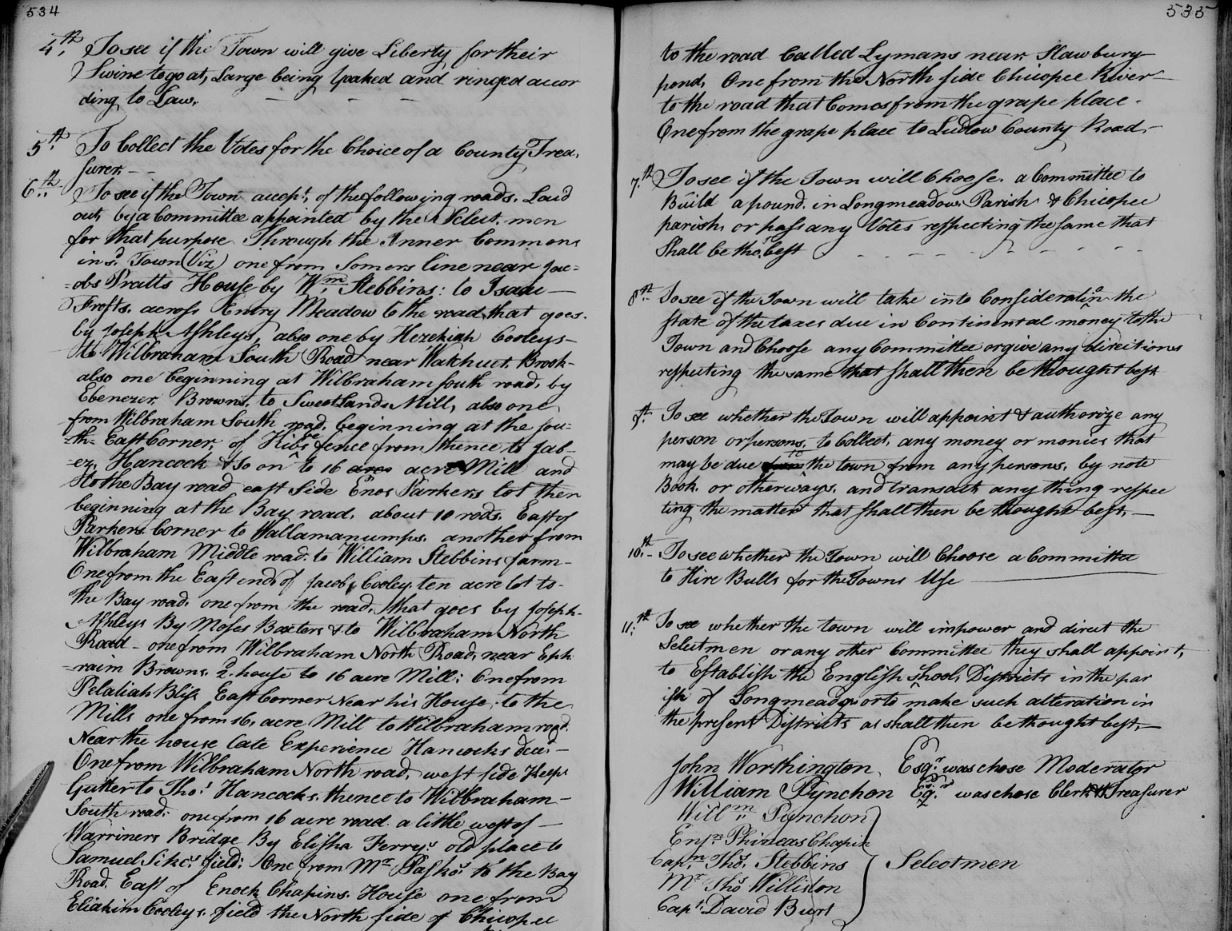 534
4.th To see if the Town will give Liberty for their
Swine to go at Large being Yoaked and ringed accor
ding to Law.
5.th To Collect the Votes for the Choice of a County Trea,
surer. -
6.th To see if the Town accept of the following roads. Laid
out, by a Committee appointed by the Select men
for that purpose Through the Inner Commons
in sd. Town (Viz) one from Somers line near Jac-
=obs Pratts House by Wm. Stebbins: to Isaac
Frosts, across Entry Meadow to the road that goes.
by Joseph Ashleys, also one by Hezekiah Cooleys
to Wilbraham South Road near Walnut Brook-
also one beginning at Wilbraham South road, by
Ebenezer Browns, to Sweetlands Mill, also one
from Wilbraham South road, beginning at the sou-
th East Corner, of fence from thence to
Hancock & so on to 16 acre Mill and
to the Bay road east side Enos Parkers lot then
beginning at the Bay road. about 10 rods. East of
Parkers Corner to Wallamanumps. another from
Wilbraham Middle road. to William Stebbins farm-
One from the East end of Jacob Cooley ten acre lot to-
the Bay road. one from the road, that goes by Joseph
Ashleys By Moses Baxters & to Wilbraham North
Road - one from Wilbraham North Road, near Eph
raim Browns 2d. house to 16 acre Mill: One from
Pelatiah Bliss East Corner Near his House; to the
Mills one from 16, acre Mill to Wilbraham road.
Near the house late Experience Hancocks
One from Wilbraham North road, west side
Gutter to Thos. Hancocks, thence to Wilbraham-
South road: one from 16 acre road a little west of -
Warriners Bridge By Elisha Ferrys old place to
Samuel field: One from Mr. to the Bay
Road. East of Enoch Chapins. House one from
Eliakim Cooleys. field the North side of Chicopee
535
to the road Called Lymans near Slawbury
pond, One from the North side Chicopee River
to the road that Comes from the grape place.
One from the grape place to Ludlow County Road,-
7.th To see if the Town will Choose a Committee to
Build a pound. in Longmeadow Parish & Chicopee
parish, or pass any Votes respecting the same that
Shall be tho.t best
8th To see if the Town will take into Consideration the
State of the taxes due in Continental money to the
Town and Choose any Committee or give any directions
respecting the same that shall then be thought best
9. To see whether the Town will appoint & authorize any
person or persons, to Collect, any money or monies that
may be due to the town from any persons, by note
Book, or otherways, and transact any thing respec
ting the matter that shall then be thought best, -
10.th - To see whether the Town will Choose a Committee
to Hire Bulls for the Towns Use
11.th To see whether the town will impower and direct the
Selectmen or any other Committee they shall appoint,
to Establish the English School, Districts in the par
ish of Longmeadow or to make such alteration in
the present Districts as shall then be thought best, -
John Worthington, Esqr. was chose Moderator
William Pynchon Esqr. was chose Clerk & Treasurer
Willm. Pynchon
Ensn. Phineas Chapin
Capn. Thos. Stebbins Selectmen
Mr. Thos Williston
Capt. David Burt